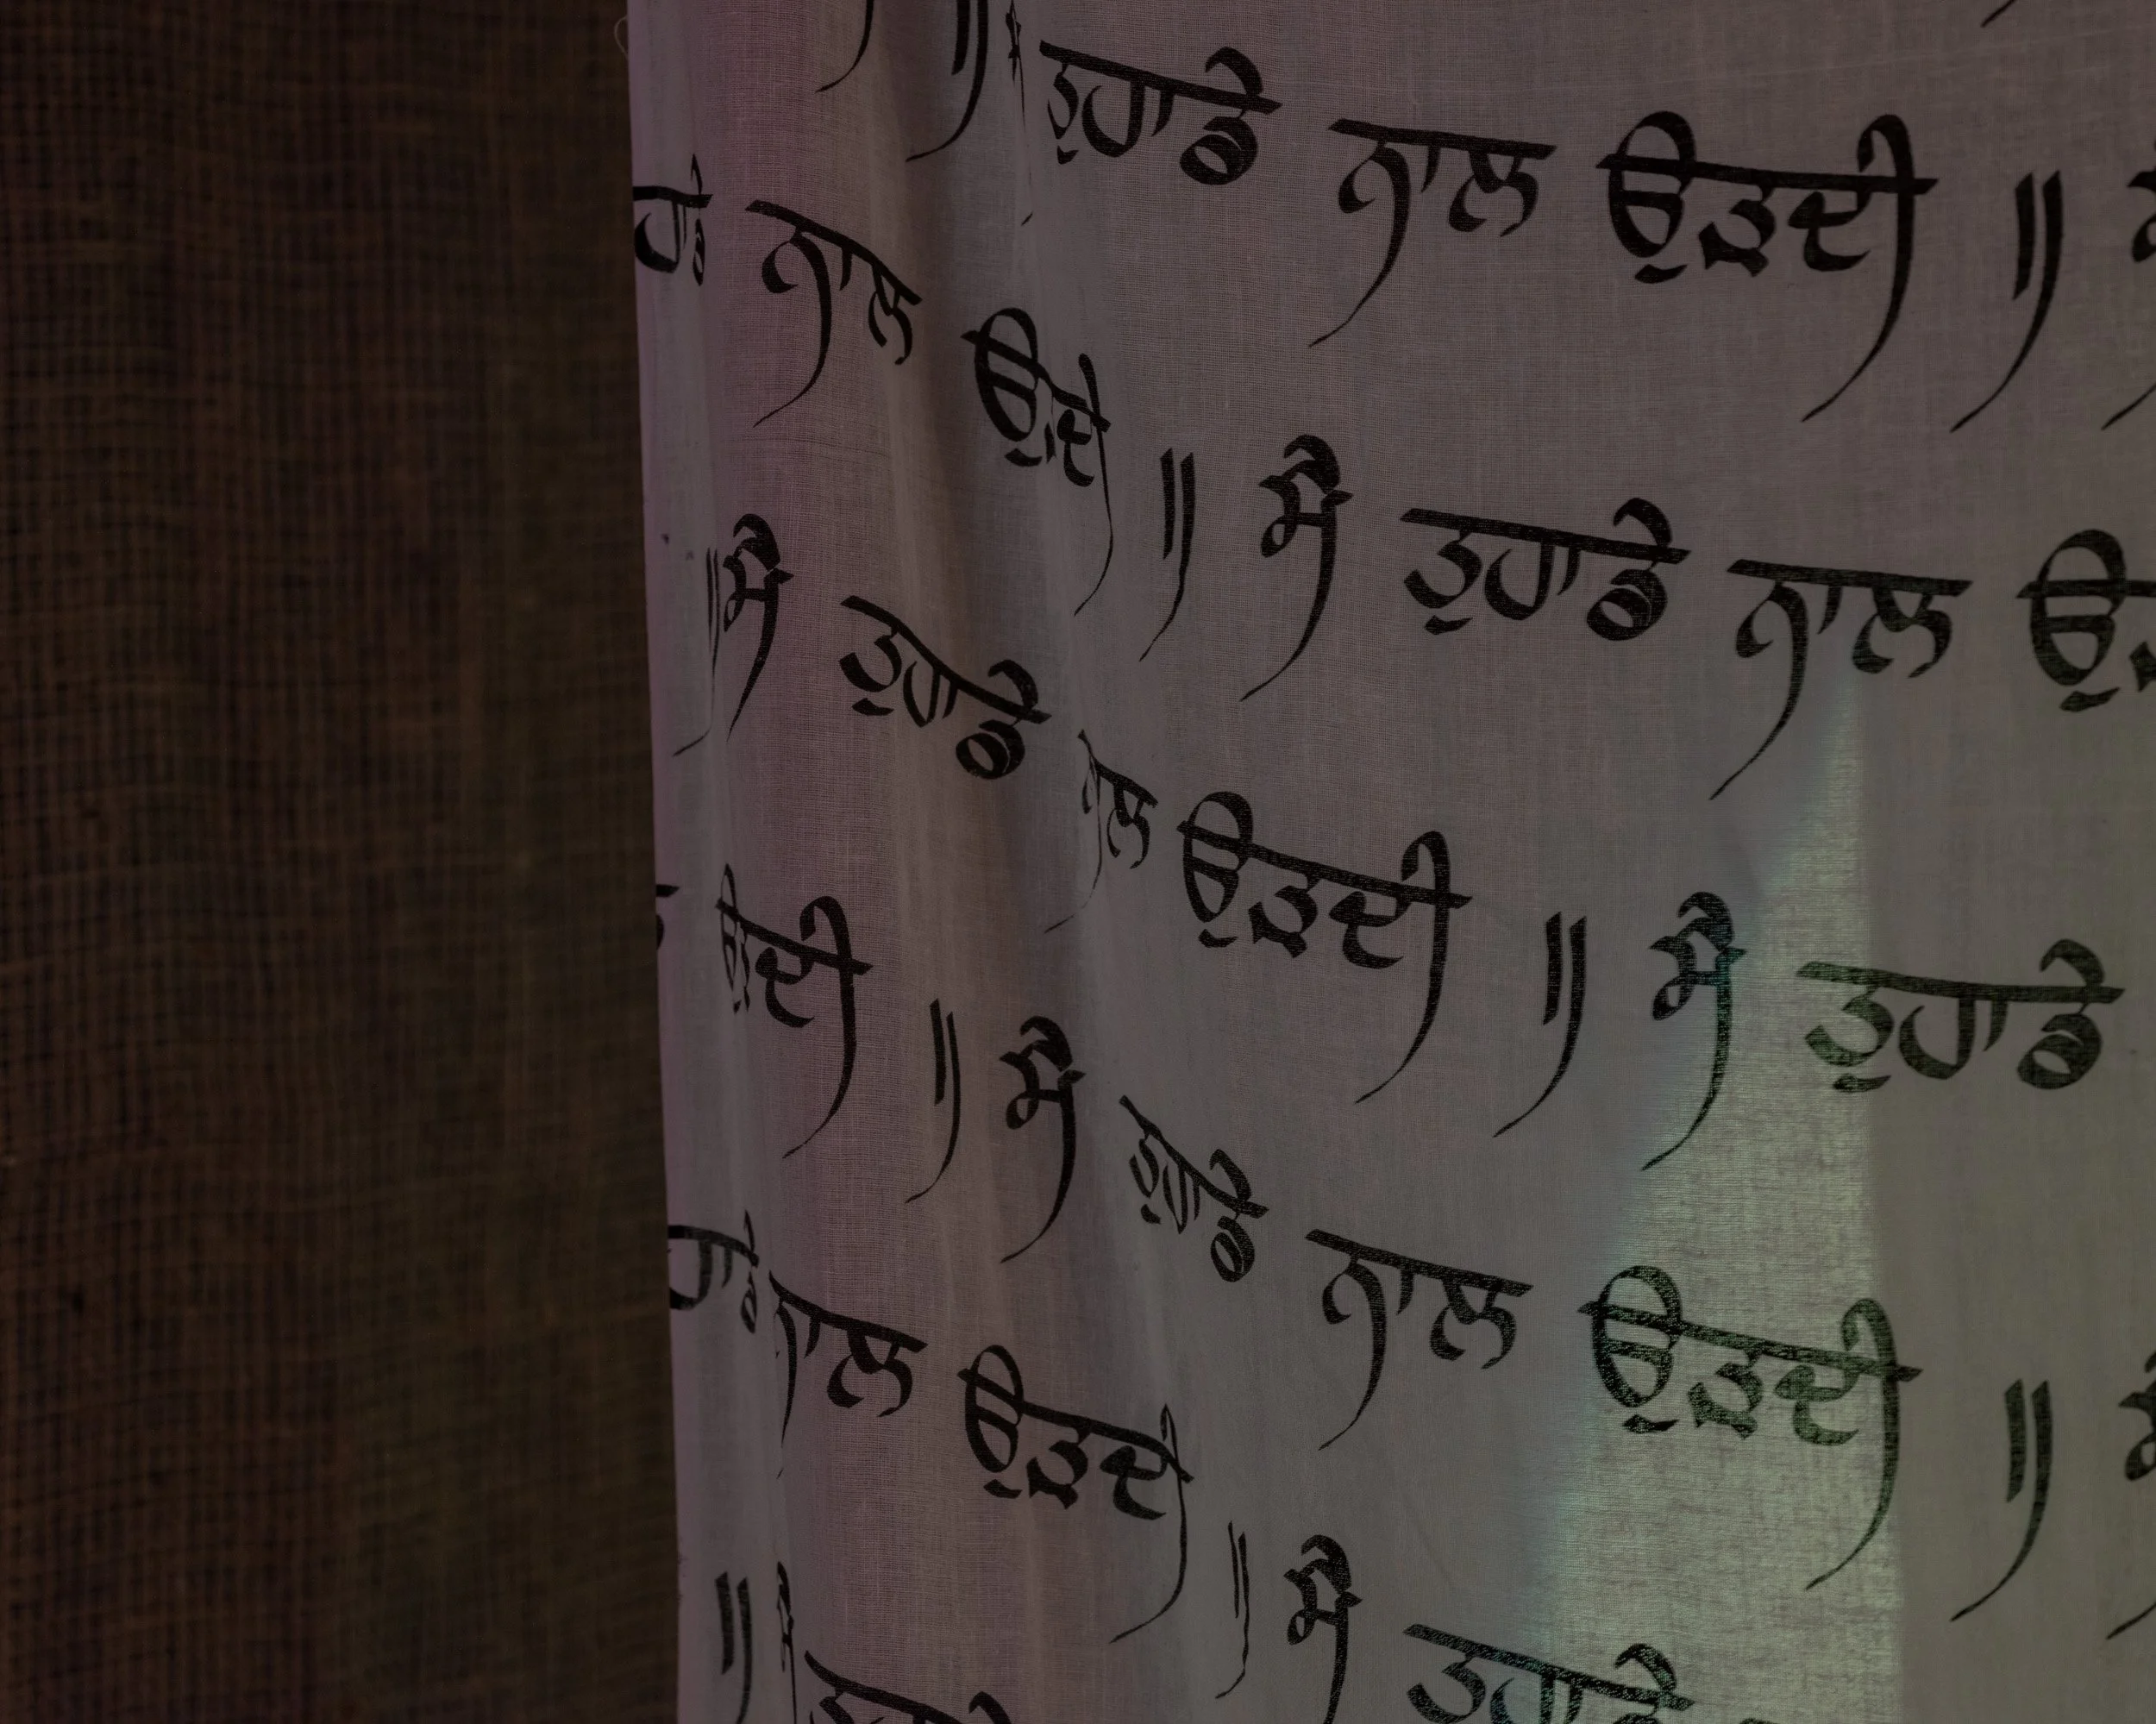 ॥ ਤੁਹਾਡੇ ਨਾਲ ਉੜਦੀ ॥
ਨਾਲ ਉੜਦੀ ॥ ਮੈ ਤੁਹਾਡੇ ਨਾਲ
॥ ਮੈ ਤੁਹਾਡੇ ਨਾਲ ਉੜਦੀ ॥ ਮੈ ਤੁਹਾਡੇ
ਉੜਦੀ ॥ ਮੈ ਤੁਹਾਡੇ ਨਾਲ ਉੜਦੀ ॥
ਨਾਲ ਉੜਦੀ ॥ ਮੈ ਤੁਹਾਡੇ
॥